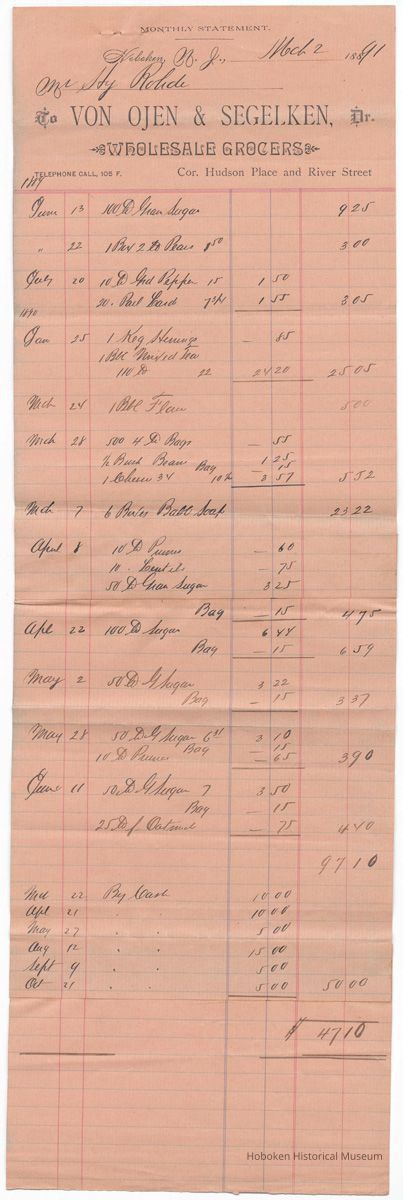 MONTHLY STATEMENT.
Hoboken, N. J., Mch 2 1891
Mr Hy Rohde
To VON OJEN & SEGELKEN, Dr.
WHOLESALE GROCERS
TELEPHONE CALL, 105 F. Cor. Hudson Place and River Street
1889
June 13 100 lb Gran Sugar 9 25
" 22 1 Box 2 lb Pears 1 50 3 00
July 20 10 lb Grd Pepper 15 1 50
20 - Pail Lard 7 3/4 1 55 3 05
1890
Jan 25 1 Keg Herrings - 85
1 Bbl Mixed Tea
110 lb 22 24 20 25 05
Mch 24 1 Bbl Flour 5 00
Mch 28 500 4 lb Bags - 55
1/2 Bush Beans 1 25
Bag - 15
1 Cheese 34 10 1/2 3 57 5 52
Mch 7 6 Boxes Babb Soap 23 22
April 8 10 lb Prunes - 60
10 - Lentils - 75
50 lb Gran Sugar 3 25
Bag - 15 4 75
Apl 22 100 lb Sugar 6 44
Bag - 15 6 59
May 2 50 lb G Sugar 3 22
Bag - 15 3 37
May 28 50 lb G Sugar 3 10
Bag - 15
10 lb Prunes - 65 3 90
June 11 50 lb G Sugar 7 3 50
Bag - 15
25 lb Oatmeal - 75 4 40
97 10
Mch 22 By Cash 10 00
Apl 21 " " 10 00
May 27 " " 5 00
Aug 12 " " 15 00
Sept 9 " " 5 00
Oct 21 " " 5 00 50 00
$ 47 10
Hoboken Historical Museum